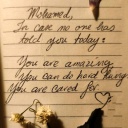 Mohamed,
In case no one has
told you today:
You are amazing
You can do hard things
You are cared for